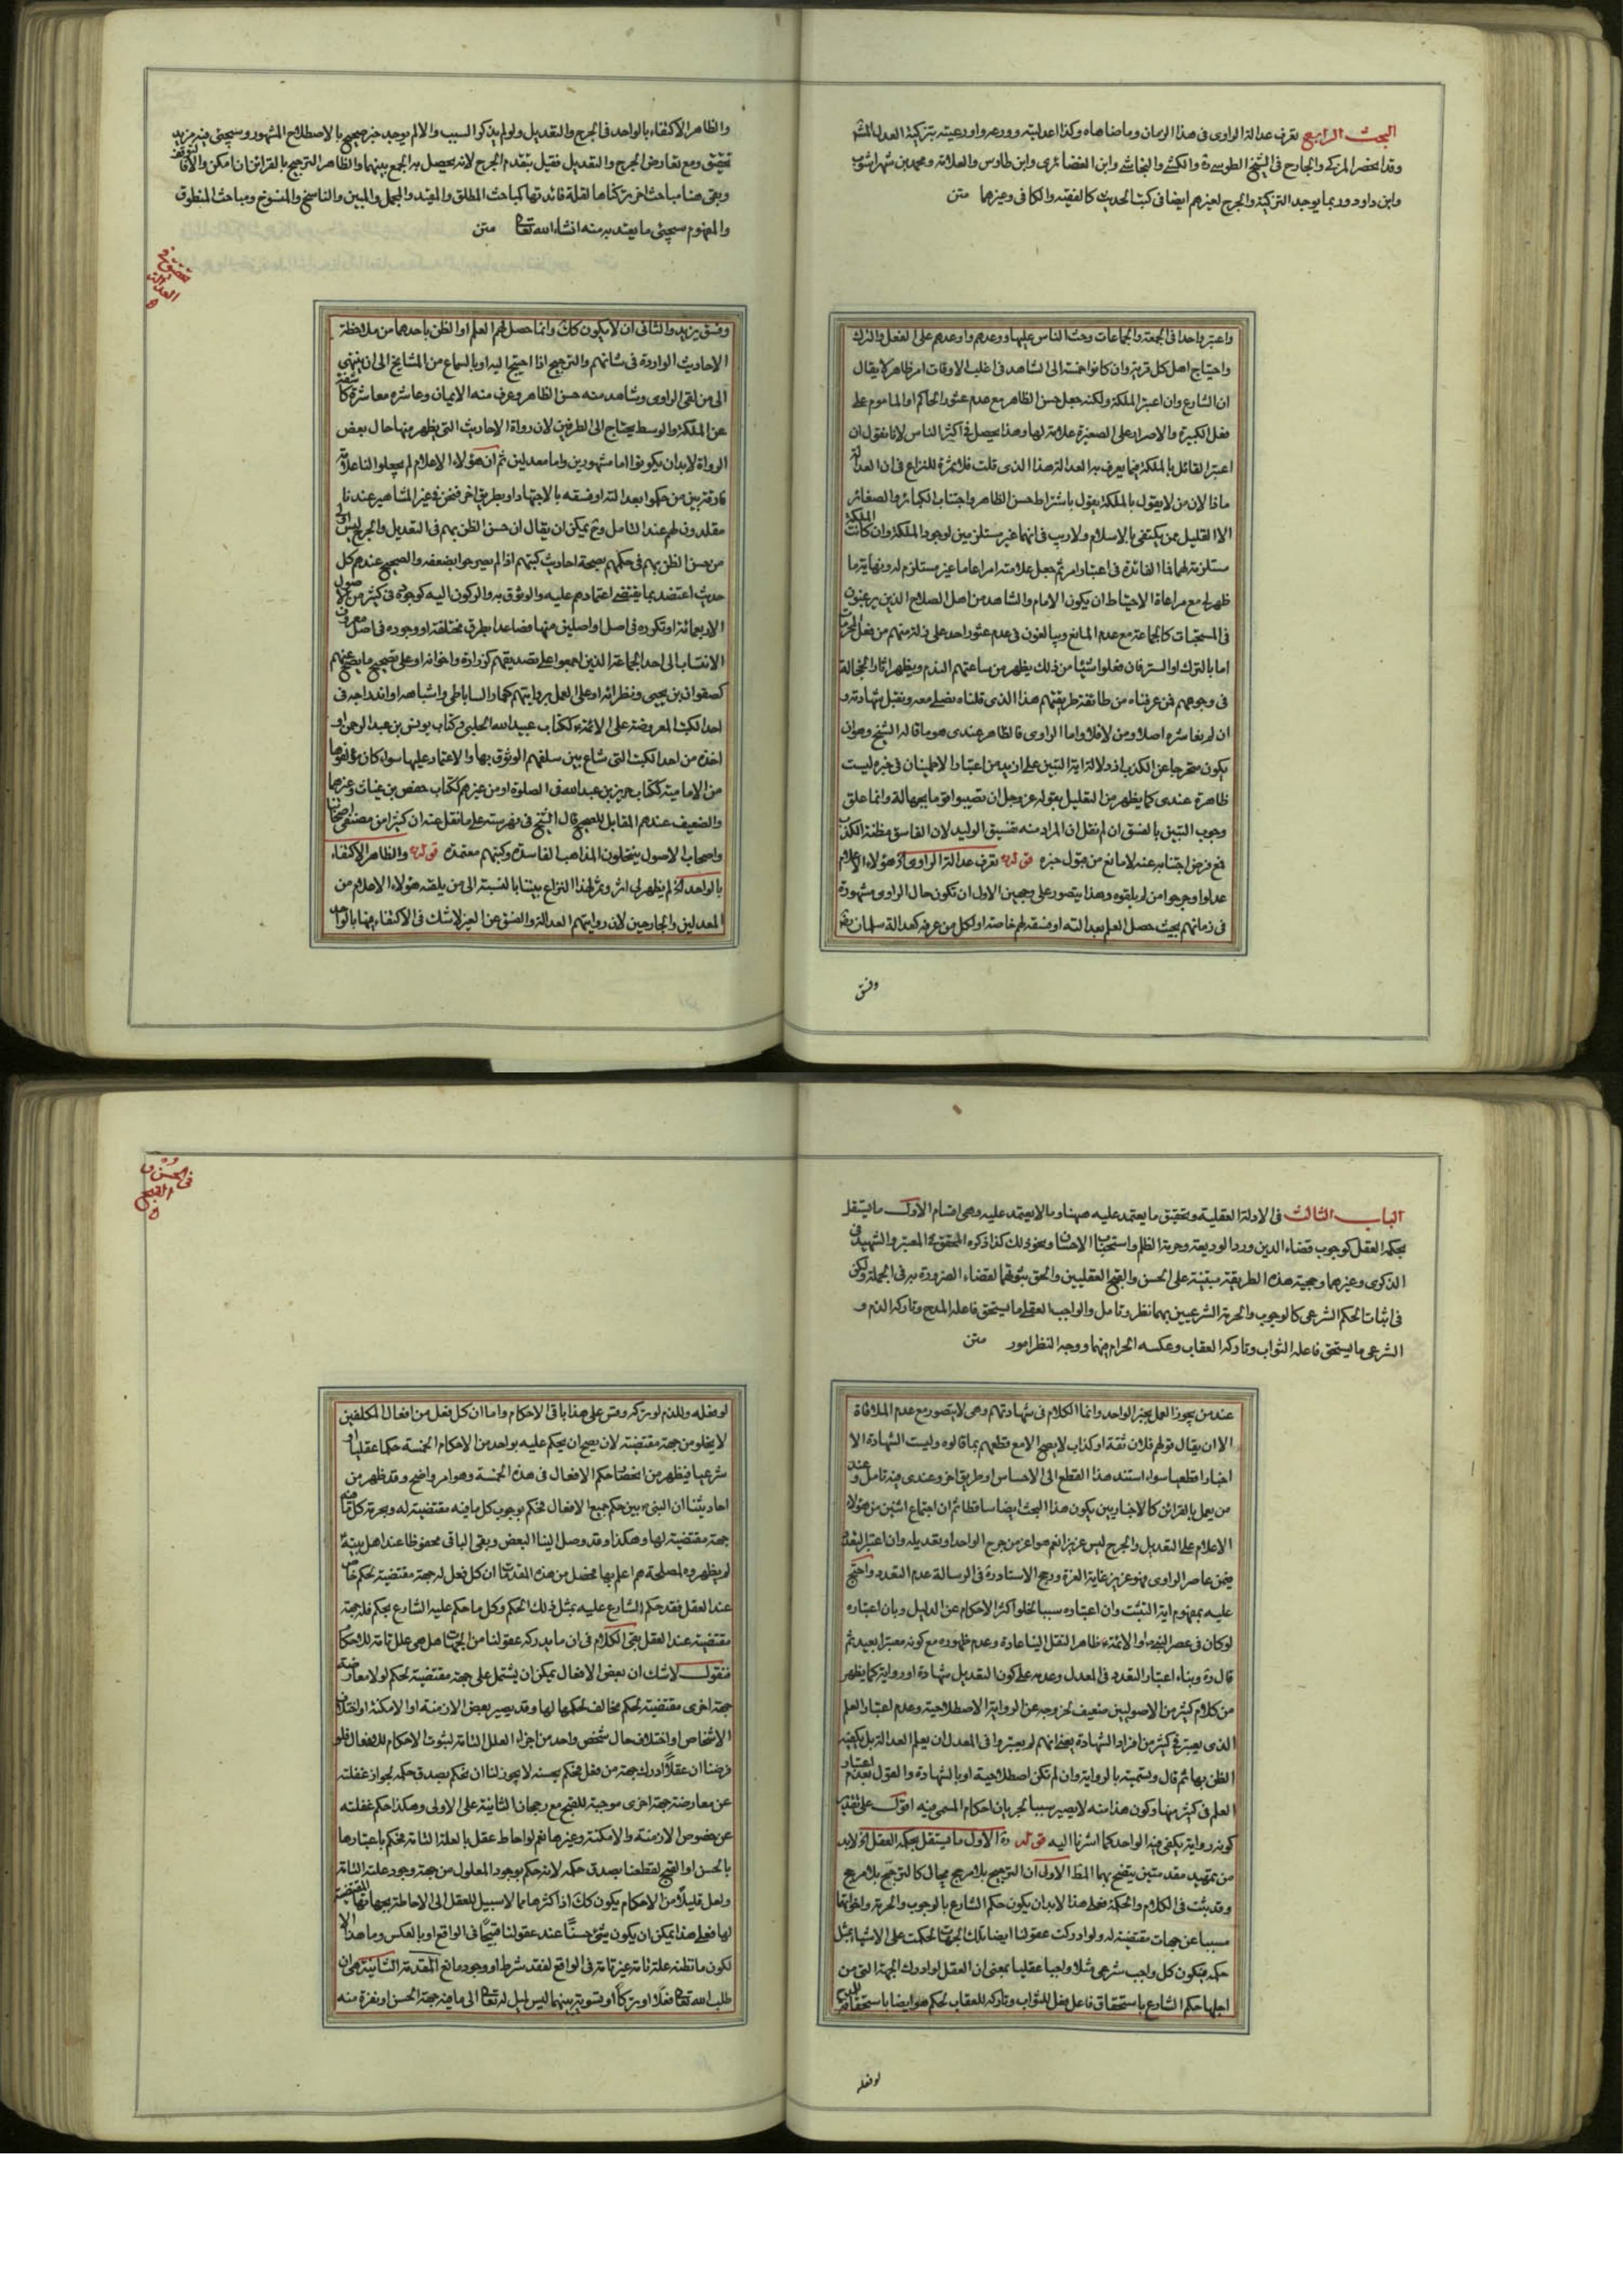 البحث الرابع تعرف عدالة الراوى فى هذا الزمان وما ضاهاه وكذا اعدليته وورعه واورعيته بتزكية العدل المشهور
وقد انحصر المزكى والجارح فى الشيخ الطوسى والكشى والنجاشى وابن الغضائرى وابن طاوس والعلامة ومحمد بن شهراشوب
وابن داود وربما يوجد التزكية والجرح لغيرهم ايضا فى كتب الحديث كالفقيه والكافى وغيرهما متن
واعتبر واحدا فى الجمعة والجماعات وحث الناس عليها ووعدهم واوعدهم على الفعل والترك
واحتياج اهل كل قرية وان كانوا خمسة الى الشاهد فى اغلب الاوقات امر ظاهر لا يقال
ان الشارع وان اعتبر الملكة ولكنه جعل حسن الظاهر مع عدم عثور الحاكم او الماموم على
فعل الكبيرة والاصرار على الصغيرة علامة لها وهذا يحصل فى اكثر الناس لانا نقول ان
اعتبر القائل بالملكة فيما يعرف به العدالة هذا الذى قلت فلا ثمرة للنزاع فى ان العدالة
ماذا لان من لا يقول بالملكة يقول باشتراط حسن الظاهر واجتناب الكبائر والصغائر
الا القليل ممن يكتفى بالاسلام ولا ريب فى انهما غير مستلزمين لوجود الملكة وان كانت الملكة
مستلزمة لهما فاالفائدة فى اعتبار امر ثم جعل علامته امرا عاما غير مستلزم له ونهاية ما
ظهر لى مع مراعاة الاحتياط ان يكون الامام والشاهد من اهل الصلاح الذين يرغبون
فى المستحبات كالجماعة مع عدم المانع ويبالغون فى عدم عثور احد على زلة منهم من فعل المحرمات
اما بالترك او الستر فان فعلوا شيئا من ذلك يظهر من ساعتهم الندم ويظهر اثار الخجالة
فى وجوههم فمن عرفناه من طائفة طريقتهم هذا الذى قلناه نصلى معه ونقبل شهادته و
ان لم نعاشره اصلا ومن لا فلا واما الراوى فالظاهر عندى هو ما قاله الشيخ وهو ان
يكون متحرجا عن الكذب اذ دلالة اية التبين على ازيد من اعتبار الاطمينان فى خبره ليست
ظاهرة عندى كما يظهر من التعليل بقوله عز وجل ان تصيبوا قوما بجهالة وانما علق
وجوب التبين بالفسق ان لم نقل ان المراد منه تفسيق الوليد لان الفاسق مظنة الكذب
فمع فرض اجتنابه عنه لا مانع من قبول خبره قوله تعرف عدالة الراوى اه هؤلاء الاعلام
عدلوا وجرحوا من لم يلقوه وهذا يتصور على وجهين الاول ان تكون حال الراوى مشهورة
فى زمانهم بحيث حصل العلم بعدالته او فسقه لهم خاصة او لكل من عرفه كعدالة سلمان
وفسق
والظاهر الاكتفاء بالواحد فى الجرح والتعديل ولو لم يذكر السبب والا لم يوجد خبر صحيح بالاصطلاح المشهور وسيجئ فيه مزيد
تحقيق ومع تعارض الجرح والتعديل فقيل بتقدم الجرح لانه يحصل به الجمع بينهما والظاهر الترجيح بالقرائن ان امكن والا فالتوقف
وبقى هنا مباحث اخر تركناها لقلة فائدتها كمباحث المطلق والمقيد والمجمل والمبين والناسخ والمنسوخ ومباحث المنطوق
والمفهوم سيجئ ما يعتد به منه انشاء الله تعالى متن
وفسق يزيد والثانى ان لا يكون كذلك وانما حصل لهم العلم او الظن باحدهما من ملاحظة
الاحاديث الواردة فى شانهم والترجيح اذا احتيج اليه او بالسماع من المشايخ الى ان ينتهى
الى من لقى الراوى وشاهد منه حسن الظاهر وعرف منه الايمان وعاشره معاشرة كاشفة
عن الملكة والوسط يحتاج الى الطرفين لان رواة الاحاديث التى يظهر منها حال بعض
الرواة لا بد ان يكونوا اما مشهورين واما معدلين ثم ان هؤلاء الاعلام لم يجعلوا لنا علامة
فارقة بين من حكموا بعدالته او فسقه بالاجتهاد او بطريق اخر فنحن فى غير المشاهير عندنا
مقلدون لهم عند التامل وح يمكن ان يقال ان حسن الظن بهم فى التعديل والجرح ليس اولى
من حسن الظن بهم فى حكمهم بصحة احاديث كتبهم اذا لم يصرحوا بضعفه والصحيح عندهم كل
حديث اعتضد بما يقتضى اعتمادهم عليه والوثوق به والركون اليه كوجوده فى كثير من الاصول
الاربعمائة او تكرره فى اصل او اصلين منها فصاعدا بطرق مختلفة او وجوده فى اصل معروف
الانتساب الى احد الجماعة الذين اجمعوا على تصديقهم كزرارة واخوانه او على تصحيح ما يصح عنهم
كصفوان بن يحيى ونظرائه او على العمل بروايتهم كعمار الساباطى واشباهه او اندراجه فى
احد الكتب المعروضة على الائمة ككتاب عبيد الله الحلبى وكتاب يونس بن عبد الرحمن او
اخذه من احد الكتب التى شاع بين سلفهم الوثوق بها والاعتماد عليها سواء كان مؤلفوها
من الامامية ككتاب حريز بن عبد الله فى الصلوة او من غيرهم ككتاب حفص بن غياث وغيرهما
والضعيف عندهم المقابل للصحيح قال الشيخ فى فهرسته على ما نقل عنه ان كثيرا من مصنفى اصحابنا
واصحاب الاصول ينتحلون المذاهب الفاسدة وكتبهم معتمدة قوله والظاهر الاكتفاء
بالواحد اه لم يظهر لى اثر وثمر لهذا النزاع بيننا بالنسبة الى من يلقه هؤلاء الاعلام من
المعدلين والجارحين لان روايتهم العدالة والفسق عن الغير لا شك فى الاكتفاء فيها بالواحد
الباب الثالث فى الادلة العقلية وتحقيق ما يعتمد عليه منها وما لا يعتمد عليه وهى اقسام الاول ما يستقل
بحكمه العقل كوجوب قضاء الدين ورد الوديعة وحرمة الظلم واستحباب الاحسان ونحو ذلك كذا ذكره المحقق فى المعتبر والشهيد فى
الذكرى وغيرهما وحجية هذه الطريقة مبتنية على الحسن والقبح العقليين والحق ثبوتهما لقضاء الضرورة به فى الجملة ولكن
فى اثبات الحكم الشرعى كالوجوب والحرمة الشرعيين بهما نظر وتامل والواجب العقلى ما يستحق فاعله المدح وتاركه الذم و
الشرعى ما يستحق فاعله الثواب وتاركه العقاب وعكسه الحرام فيهما ووجه النظر امور متن
عند من يجوز العمل بخبر الواحد وانما الكلام فى شهادتهم وهى لا يتصور مع عدم الملاقاة
الا ان يقال قولهم فلان ثقة او كذاب لا يصح الا مع قطعهم بما قالوه وليست الشهادة الا
اخبارا قطعيا سواء استند هذا القطع الى الاحساس او طريق اخر وعندى فيه تامل وعند
من يعمل بالقرائن كالاخباريين يكون هذا البحث ايضا ساقطا ثم ان اجتماع اثنين من هؤلاء
الاعلام على التعديل والجرح ليس عزيزا نعم هو اعز من جرح الواحد او تعديله وان اعتبر التعدد
فيمن عاصر الراوى فهو عزيز غاية العزة ورجح الاستاد ره فى الرسالة عدم التعدد واحتج
عليه بمفهوم اية التثبت وان اعتباره سبب الخلو اكثر الاحكام عن الدليل وبان اعتباره
لو كان فى عصر النبى او الائمة ظاهر النقل الينا عادة وعدم ظهوره مع كونه معتبرا بعيد ثم
قال ره وبناء اعتبار التعدد فى المعدل وعدمه على كون التعديل شهادة او رواية كما يظهر
من كلام كثير من الاصوليين ضعيف لخروجه عن الرواية الاصطلاحية وعدم اعتبار العلم
الذى يعتبر فى كثير من افراد الشهادة بمعنى انهم لم يعتبروا فى المعدل ان يعلم العدالة بل يكفيه
الظن بها ثم قال وتسميته بالرواية وان لم تكن اصطلاحية او بالشهادة والقول بعدم اعتبار
العلم فى كثير منها وكون هذا منه لا يصير سببا لجريان احكام المسمى فيه اقول على تقدير
كونه رواية يكفى فيه الواحد كما اشرنا اليه قوله ره الاول ما يستقل بحكمه العقل اه لا بد
من تمهيد مقدمتين يتضح بهما المط الاولى ان الترجيح بلا مرجح محال كالترجح بلا مرجح
وقد يثبت فى الكلام والحكمة فعلى هذا لا بد ان يكون حكم الشارع بالوجوب والحرمة واخواتها
مسببا عن جهات مقتضية له ولو ادركت عقولنا ايضا تلك الجهات لحكمت على الاشياء بمثل
حكمه فيكون كل واجب شرعى مثلا واجبا عقليا بمعنى ان العقل لو ادرك الجهة التى من
اجلها حكم الشارع باستحقاق فاعل فعل للثواب وتاركه للعقاب لحكم هو ايضا باستحقاقه للمدح
لو فعله
فى الحسن و
القبح
لو فعله وللذم لو تركه وقس على هذا باقى الاحكام واما ان كل فعل من افعال المكلفين
لا يخلو من جهة مقتضية لان يصح ان يحكم عليه بواحد من الاحكام الخمسة حكما عقليا او
شرعيا فيظهر من انحصار حكم الافعال فى هذه الخمسة وهو امر واضح وقد ظهر من
احاديثنا ان النبى بين حكم جميع الافعال فحكم بوجوب كل ما فيه مقتضية له وبحرمة كل ما فيه
جهة مقتضية لها وهكذا وقد وصل الينا البعض وبقى الباقى محفوظا عند اهل بيته
لم يظهروه لمصلحة هم اعلم بها فحصل من هذه المقدمات ان كل فعل له جهة مقتضية لحكم خاص
عند العقل فقد حكم الشارع عليه بمثل ذلك الحكم وكل ما حكم عليه الشارع بحكم فله جهة
مقتضية عند العقل بقى الكلام فى ان ما يدركه عقولنا من الجهات هل هى علل تامة للاحكام
فنقول لا شك ان بعض الافعال يمكن ان يشتمل على جهة مقتضية لحكم لولا معارضة
جهة اخرى مقتضية لحكم مخالف لحكمها لها وقد يصير بعض الازمنة او الامكنة او اختلاف
الاشخاص او اختلاف حال شخص واحد من اجزاء العلل التامة لثبوت الاحكام للافعال فلو
فرضنا ان عقلا ادرك جهة من فعل فحكم بحسنه لا يجوز لنا ان نحكم بصدق حكمه لجواز غفلته
عن معارضة جهة اخرى موجبة للقبح مع رجحان الثانية على الاولى وهكذا حكم غفلته
عن خصوص الازمنة والامكنة وغيرها نعم لو احاط عقل بالعلة التامة فحكم باعتبارها
بالحسن او القبح لقطعنا بصدق حكمه لانه حكم بوجود المعلول من جهة وجود علته التامة
ولعل قليلا من الاحكام يكون كذلك اذ اكثرها مما لا سبيل للعقل الى الاحاطة بجهاتها المقتضية
لها فعلى هذا يمكن ان يكون شئ حسنا عند عقولنا قبيحا فى الواقع او بالعكس وما هذا الا
لكون ما نظنه علة تامة غير تامة فى الواقع لفقد شرط او وجود مانع المقدمة الثانية هى ان
طلب الله تعالى فعلا او تركا او تسوية بينهما ليس لميل له تعالى الى ما فيه جهة الحسن او نفرة منه